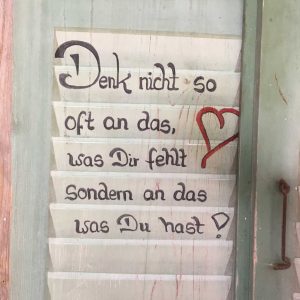 Denk nicht so
oft an das,
was Dir fehlt
sondern an das
was Du hast!